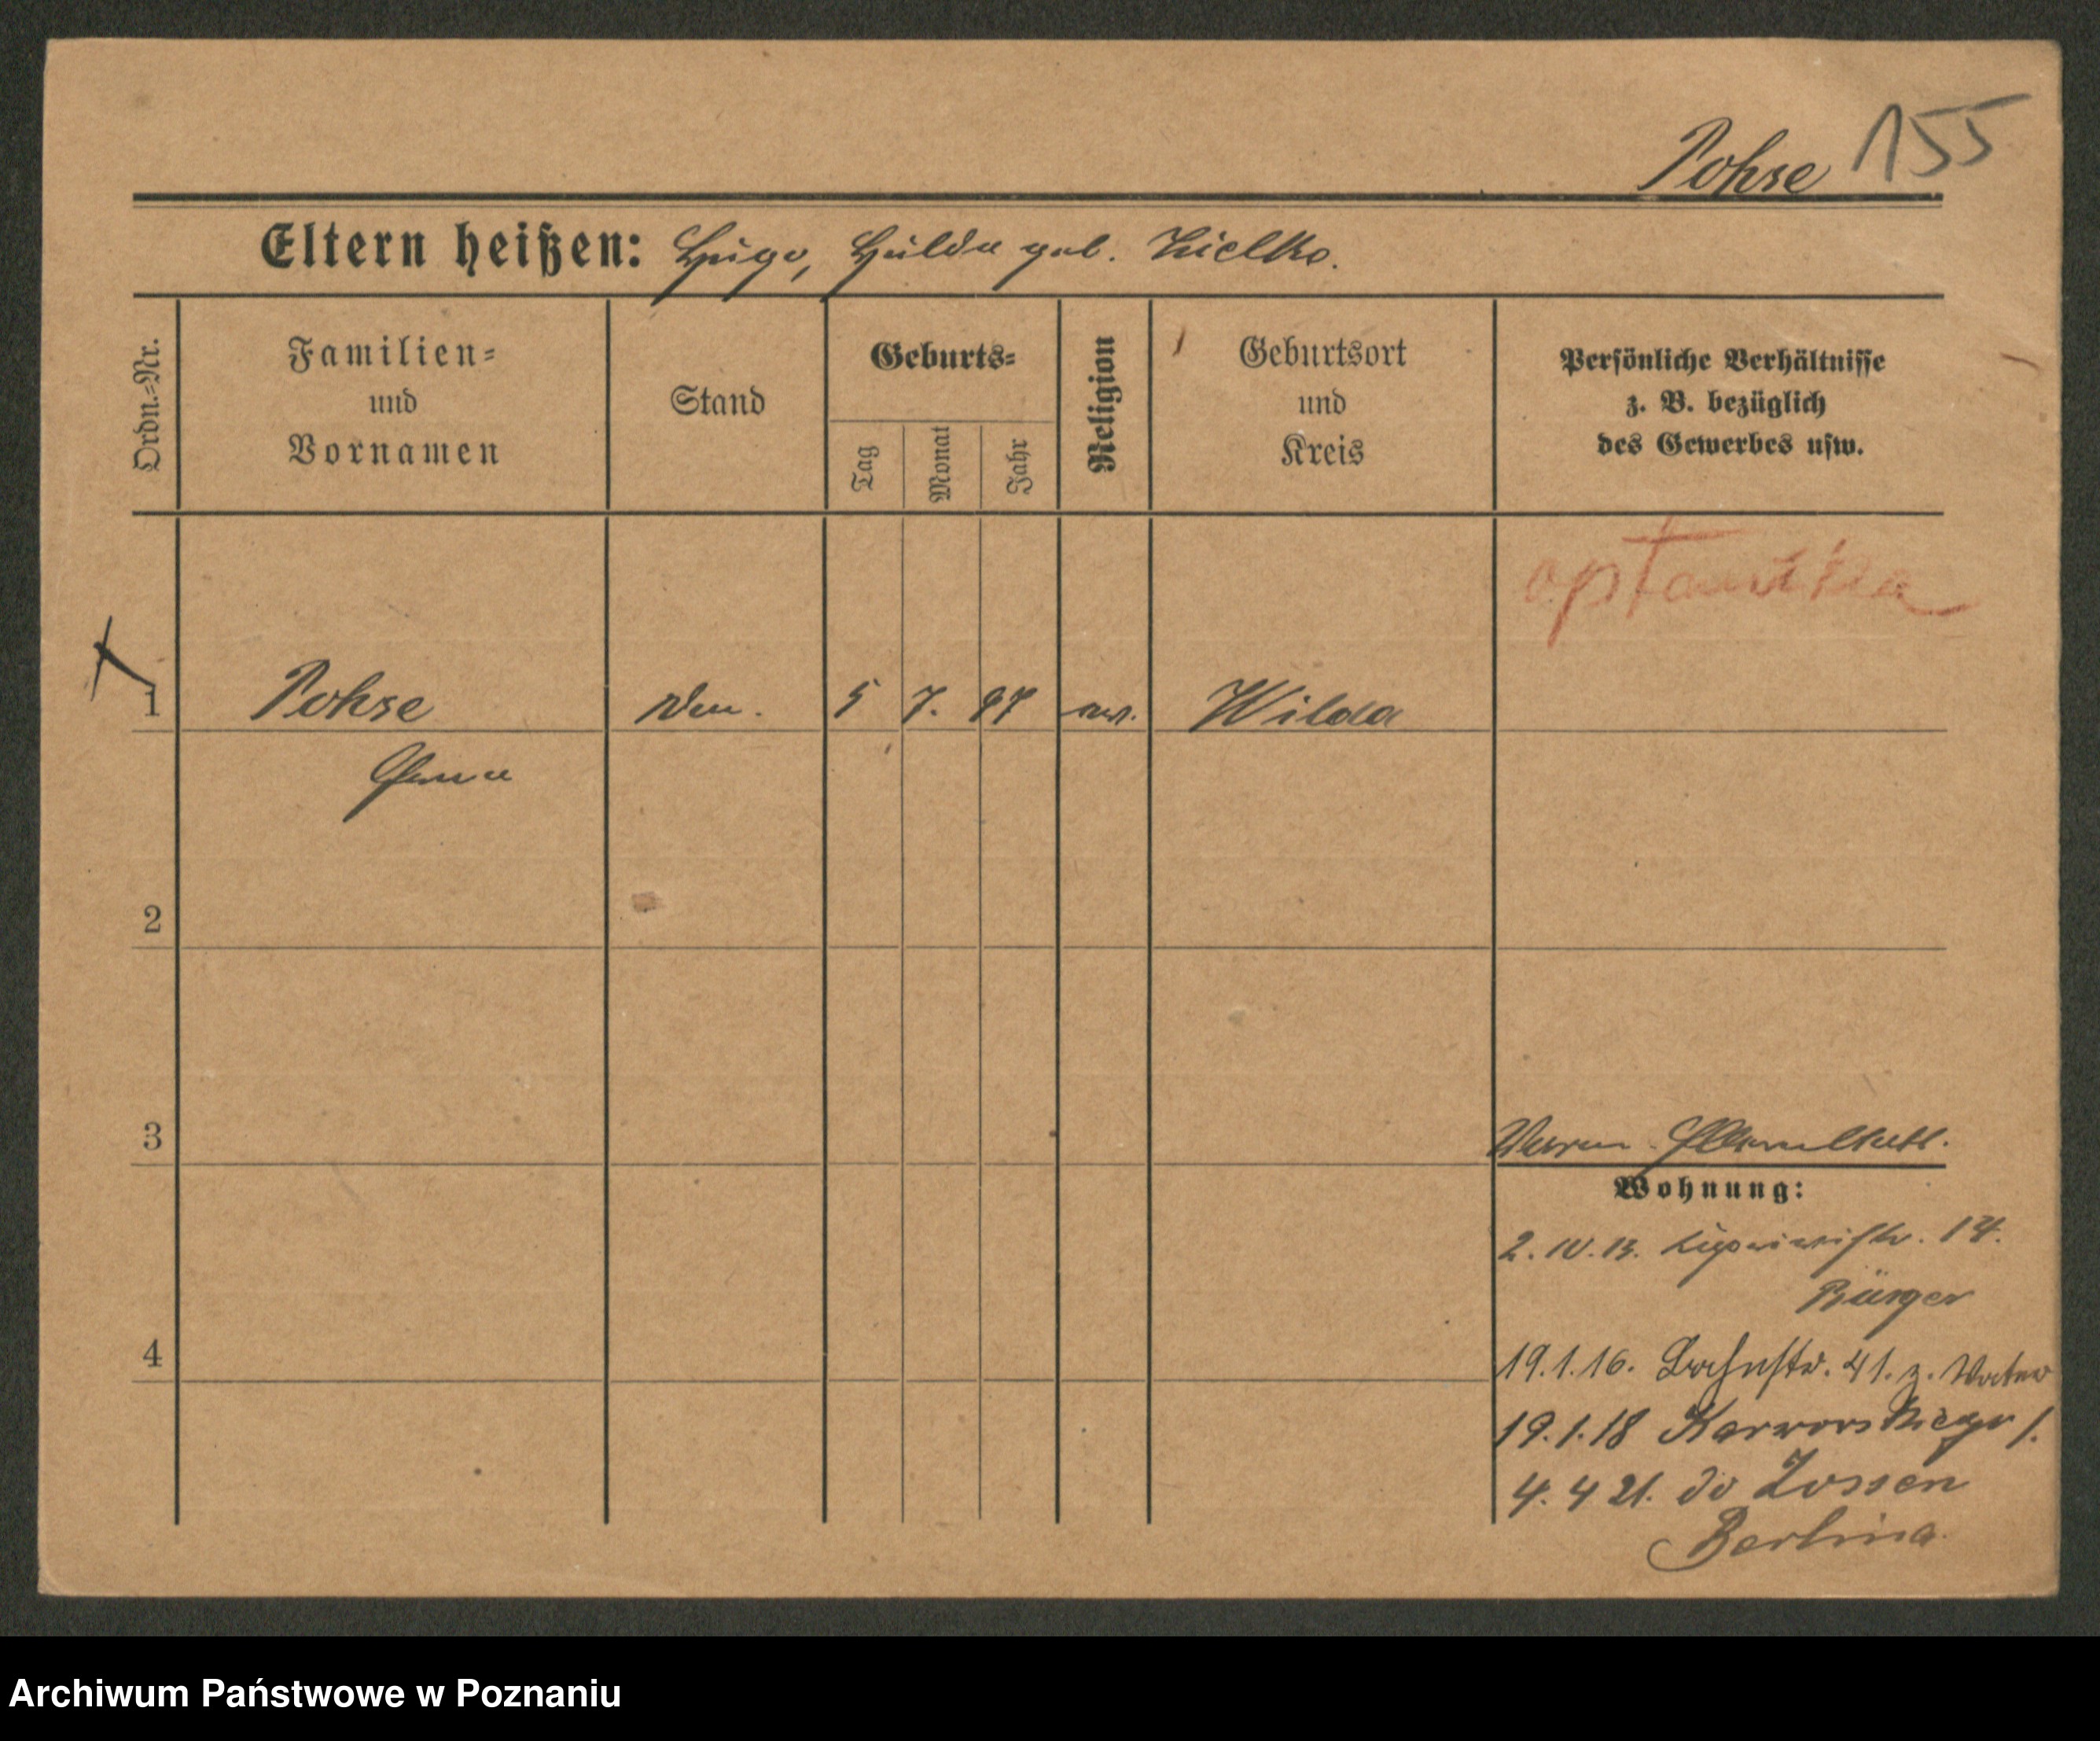 155
Pohse
Eltern heißen: Hugo, Hulda geb. Zielke.
Ordn.=Nr.
Familien=
und
Vornamen
Stand
Geburts=
Tag
Monat
Jahr
Religion
Geburtsort
und
Kreis
Persönliche Verhältnisse
z. B. bezüglich
des Gewerbes usw.
optantka
1 Pohse 5 7. 97 ev. Wilda
2
3
Wohnung:
2. IV. 13. 14.
Bürger
4
19.1.16. Bahnstr. 41. z. Vater
19.1.18 Karwowskiego 1.
4. 4 21. do Zossen
Berlina.
Archiwum Państwowe w Poznaniu